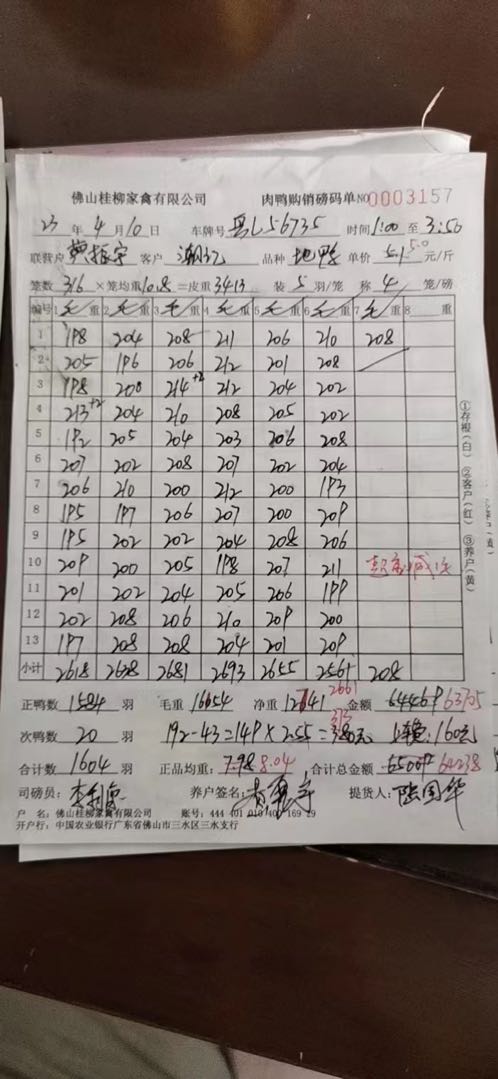 佛山桂柳家禽有限公司 肉鸭购销磅码单 NO 0003157
23 年 4 月 10 日 车牌号 L56735 时间 1:00 至 3:50
联营户 客户 品种 地鸭 单价 5.1 5.0 元/斤
笼数 316 ×笼均重 10.8 =皮重 3413 装 5 羽/笼 称 4 笼/磅
编号 1 毛 重 2 毛 重 3 毛 重 4 毛 重 5 毛 重 6 毛 重 7 毛 重 8 重
1 198 204 208 211 206 210 208
2 205 196 206 212 201 208
3 198 200 214+2 212 204 202
4 213+2 204 210 208 205 202
5 192 205 204 203 206 208
6 207 202 208 207 202 204
7 206 210 200 212 200 193
8 195 197 206 207 200 209
9 195 202 202 204 208 206
10 209 200 205 198 207 211
11 201 202 204 205 206 199
12 202 208 206 210 209 200
13 197 208 208 204 201 209
小计 2618 2638 2681 2693 2655 2561 208
正鸭数 1584 羽 毛重 16054 净重 12641 2661 金额 64469 63705
次鸭数 20 羽 192-43=149×2.55=380元 373 160元
合计数 1604 羽 正品均重: 7.98 8.04 合计总金额 65009 64238
司磅员: 养户签名: 提货人: 陈国华
户 名: 佛山桂柳家禽有限公司 账号: 444 401 010 400 169 29
开户行: 中国农业银行广东省佛山市三水区三水支行
①存根(白) ②客户(红) ③养户(黄)